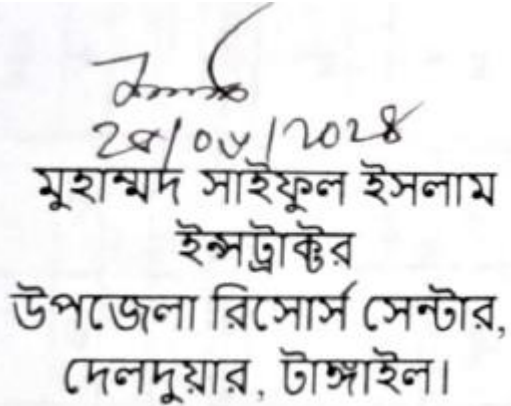 মুহাম্মদ সাইফুল ইসলাম
ইন্সট্রাক্টর
উপজেলা রিসোর্স সেন্টার,
দেলদুয়ার, টাঙ্গাইল।